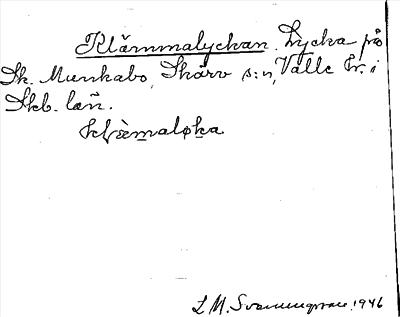 Klämmalyckan. Lycka på
Sk. Munkabo, Skärv s:n, Valle hr. i
Skb. län.
L M. Svanungsson 1946